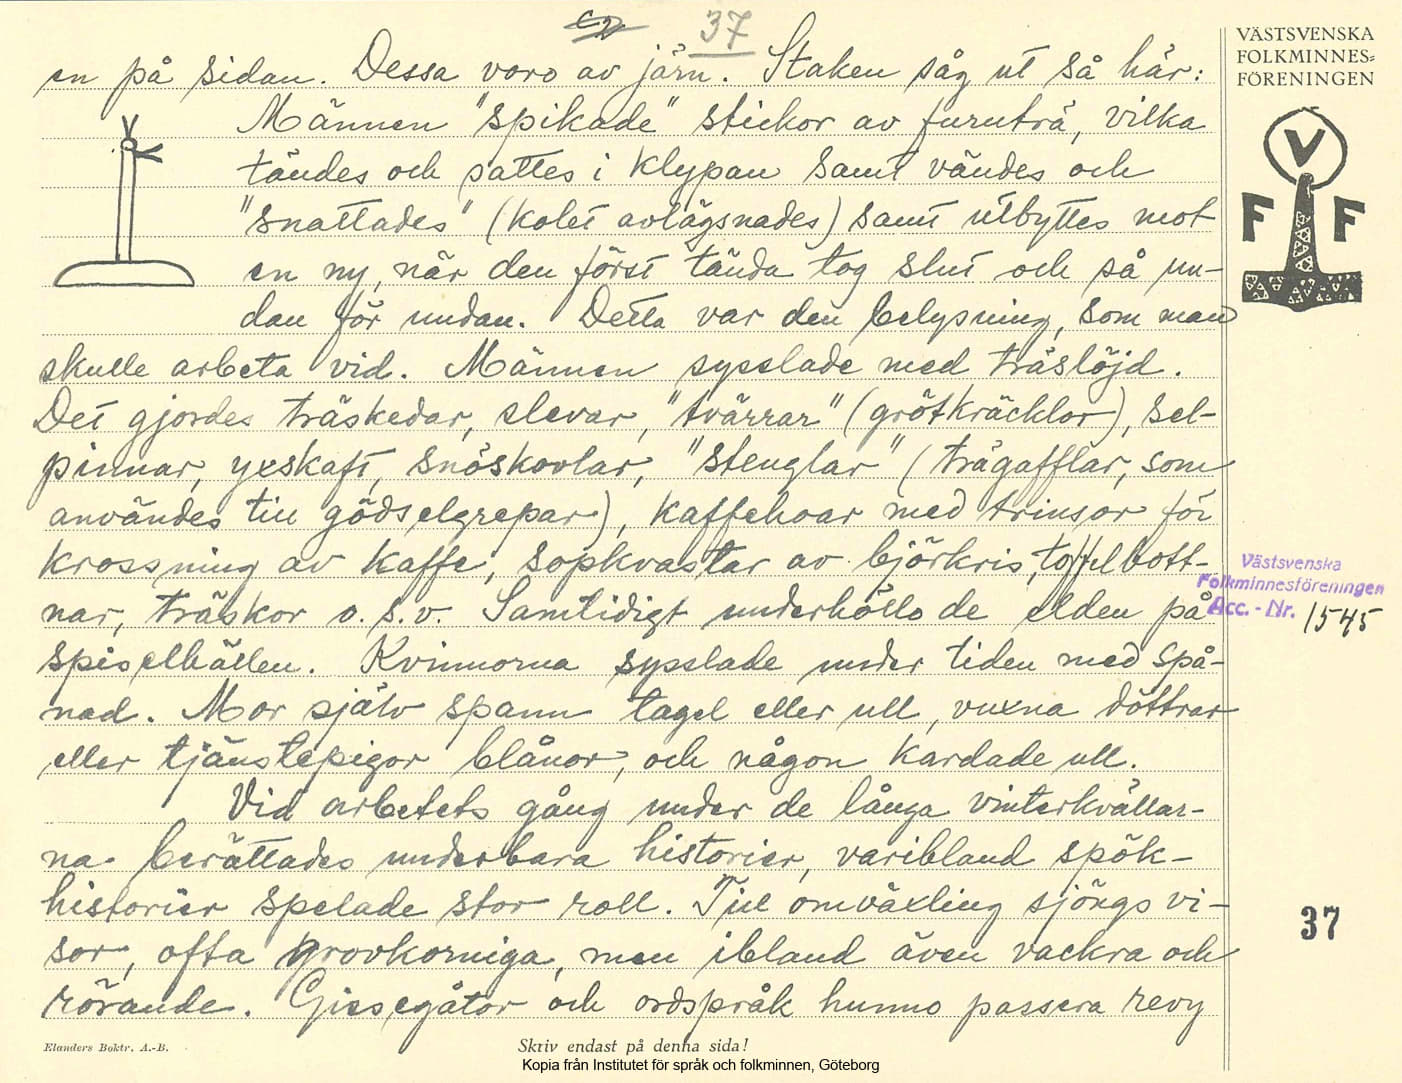 37
VÄSTSVENSKA
FOLKMINNES=
FÖRENINGEN
V
F F
en på sidan. Dessa voro av järn. Staken såg ut så här:
Männen "spikade" stickor av furuträ, vilka
tändes och sattes i klypan samt vändes och
"snattades" (kolet avlägsnades) samt utbyttes mot
en ny, när den först tända tog slut och så un-
dan för undan. Detta var den belysning, som man
skulle arbeta vid. Männen sysslade med träslöjd.
Det gjordes träskedar, slevar, "tvärrar" (grötkräcklor), sel-
pinnar, yxskaft, snöskovlar, "stenglar" (trägafflar, som
användes till gödselgrepar), kaffehoar med trinsor för
krossning av kaffe, sopkvastar av björkris, toffelbott-
nar, träskor o.s.v. Samtidigt underhöllo de elden på
spiselhällen. Kvinnorna sysslade under tiden med spå-
nad. Mor själv spann tagel eller ull, vuxna döttrar
eller tjänstepigor blånor, och någon kardade ull.
Vid arbetets gång under de långa vinterkvällar-
na berättades underbara historier, varibland spök-
historier spelade stor roll. Till omväxling sjöngs vi-
sor, ofta grovkorniga, men ibland även vackra och
rörande. Gissegåtor och ordspråk hunno passera revy
Västsvenska
Folkminnesföreningen
Acc.-Nr. 1545
37
Elanders Boktr. A.-B.
Skriv endast på denna sida!
Kopia från Institutet för språk och folkminnen, Göteborg